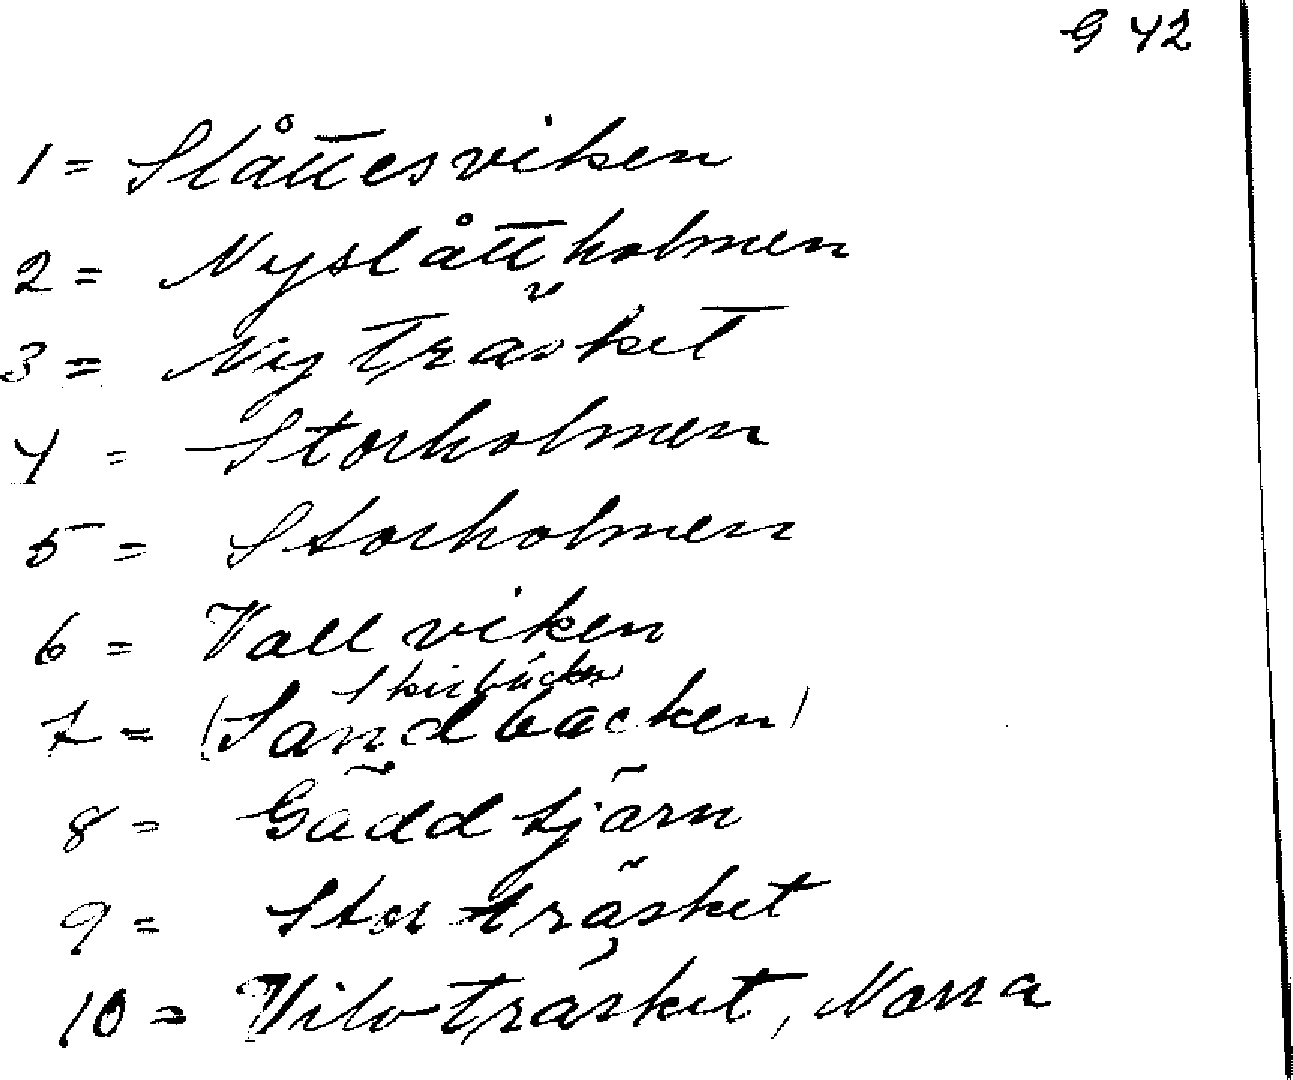 G 42
1 = Slåttesviken
2 = Nyslåttholmen
3 = Nyträsket
4 = Storholmen
5 = Storholmen
6 = Vallviken
7 = (Sandbacken)
8 = Gäddtjärn
9 = Storträsket
10 = Viloträsket, Norra